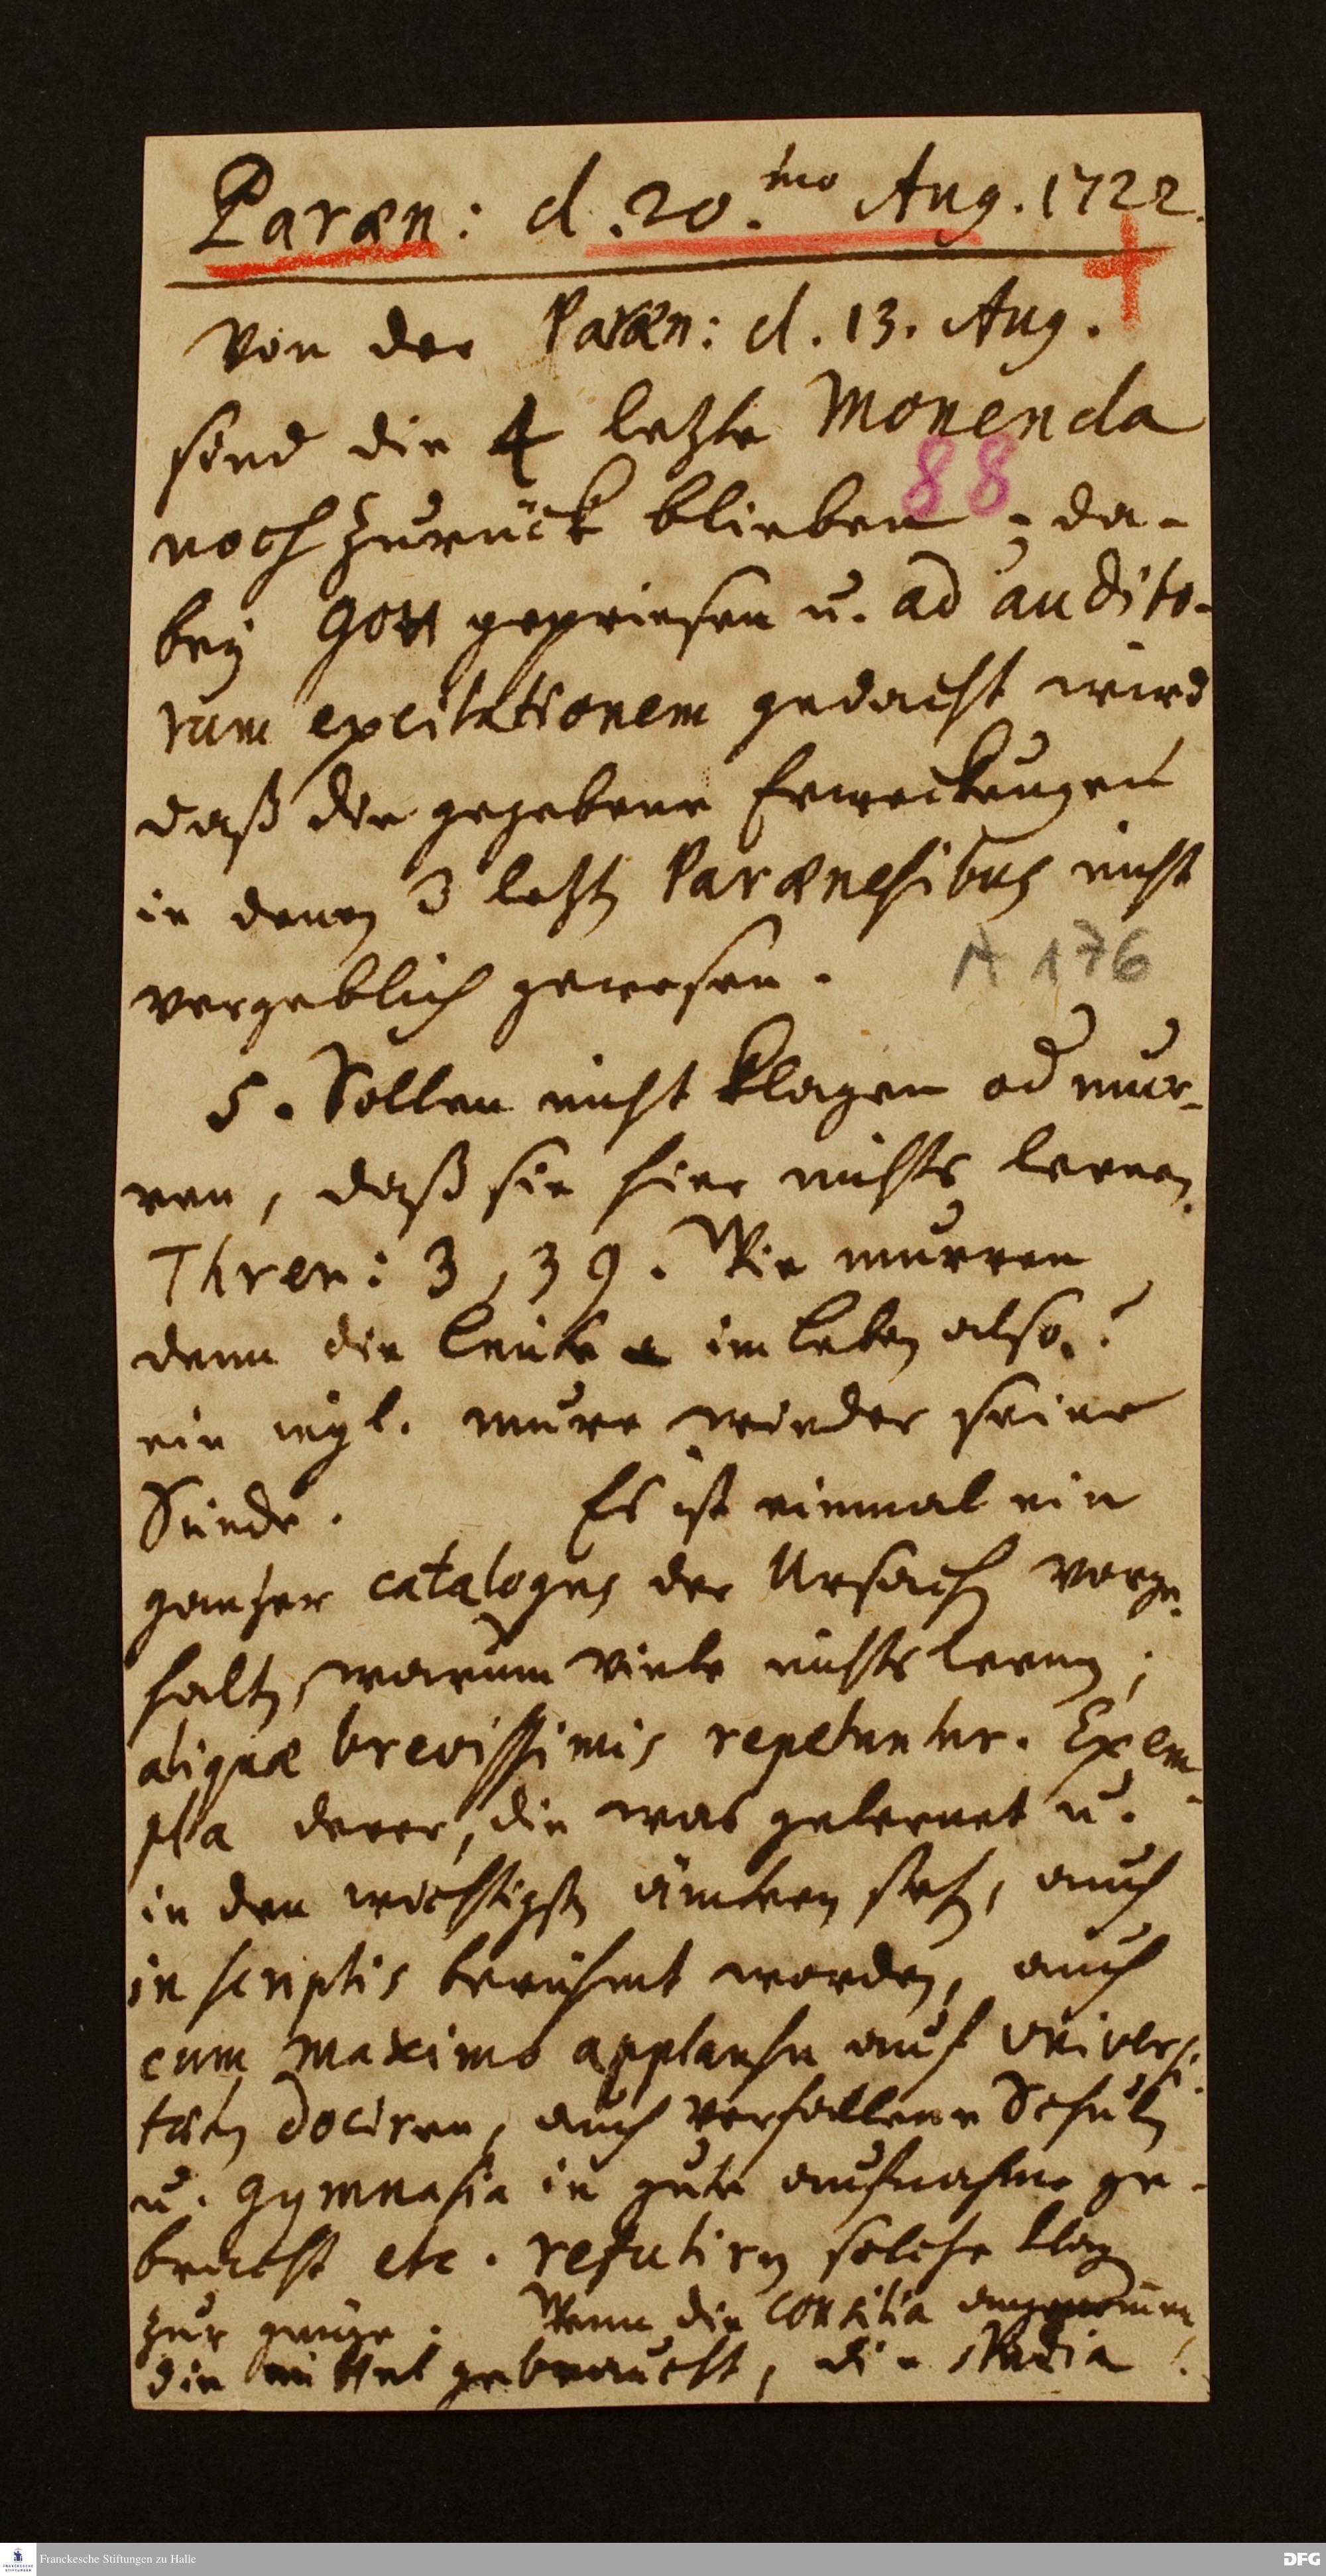 Paræn: d. 20.mo Aug. 1722.
Von der Paræn: d. 13. Aug.
sind die 4 letzte Monenda
88
noch zurück blieben; da-
bey Gott gepriesen u. ad audito-
rum excitationem gedacht wird
daß die gegebene Erweckungen
in denen 3 letzten Parænesibus nicht
vergeblich gewesen.
A 176
5. Sollen nicht klagen od mur-
ren, daß sie hier nichts lernen.
Thren: 3, 39. Wie murren
denn die Leute im Leben also?
ein iegl. murre wieder seine
Sünde. Es ist einmal ein
gantzer catalogus der Ursachen vorge-
halten, warum viele nichts lernen;
aliquæ brevissimis repetuntur. Exem-
pla derer, die was gelernet u.
in den wichtigsten ämtern stehen, auch
in scriptis berühmt worden, auch
cum maximo applausu auf Universi-
täten dociren, auch verfallene Schulen
u. Gymnasia in gute aufnahme ge-
bracht etc. refutiren solche Klagen
zur gnüge. Wenn die consilia angenommen
die Mittel gebraucht, die Studia
Franckesche Stiftungen zu Halle
DFG